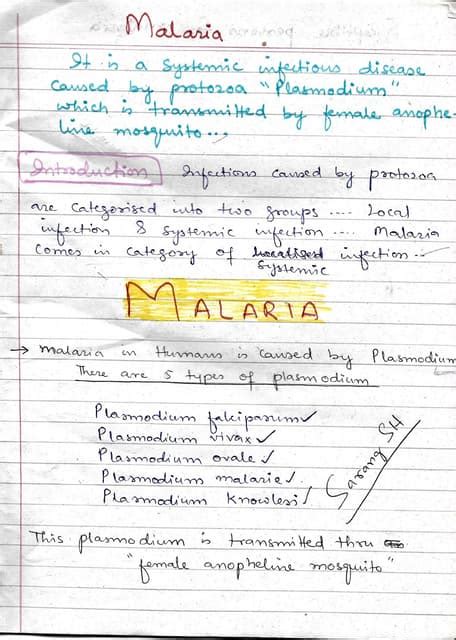 Malaria
It is a systemic infectious disease
caused by protozoa "Plasmodium"
which is transmitted by female anophe-
line mosquito...
Introduction Infections caused by protozoa
are categorised into two groups .... Local
infection & systemic infection .... Malaria
comes in category of localised infection..
systemic
MALARIA
→ malaria in Humans is caused by Plasmodium
There are 5 types of plasmodium
Plasmodium falciparum ✓
Plasmodium vivax ✓
Plasmodium ovale ✓
Plasmodium malarie ✓
Plasmodium Knowlesi ✓
Sarang SH
This plasmodium is transmitted thru
"female anopheline mosquito"